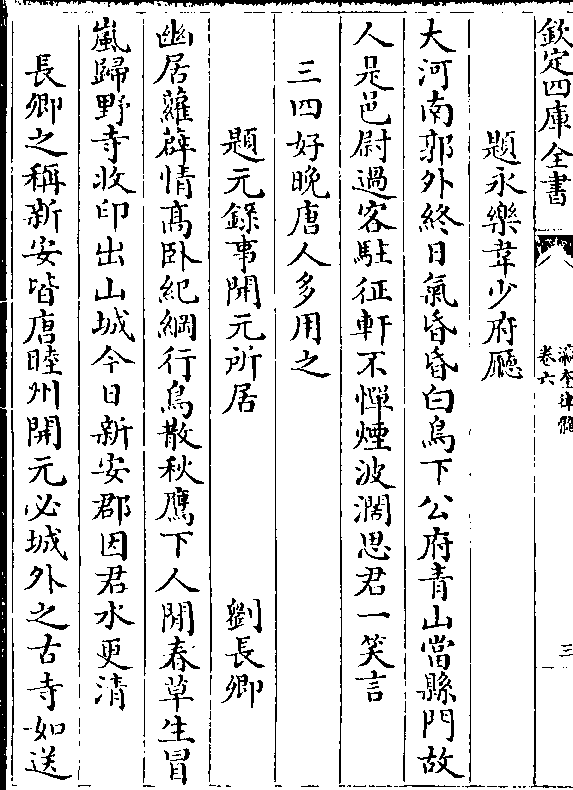 欽定四庫全書
瀛奎律髓
卷六
三
題永樂韋少府廳
大河南郭外終日氣昏昏白鳥下公府青山當縣門故
人是邑尉過客駐征軒不憚煙波濶思君一笑言
三四好晚唐人多用之
題元錄事開元所居
劉長卿
幽居蘿薜情高卧紀綱行鳥散秋鷹下人閒春草生冒
嵐歸野寺收印出山城今日新安郡因君水更清
長卿之稱新安皆唐睦州開元必城外之古寺如送